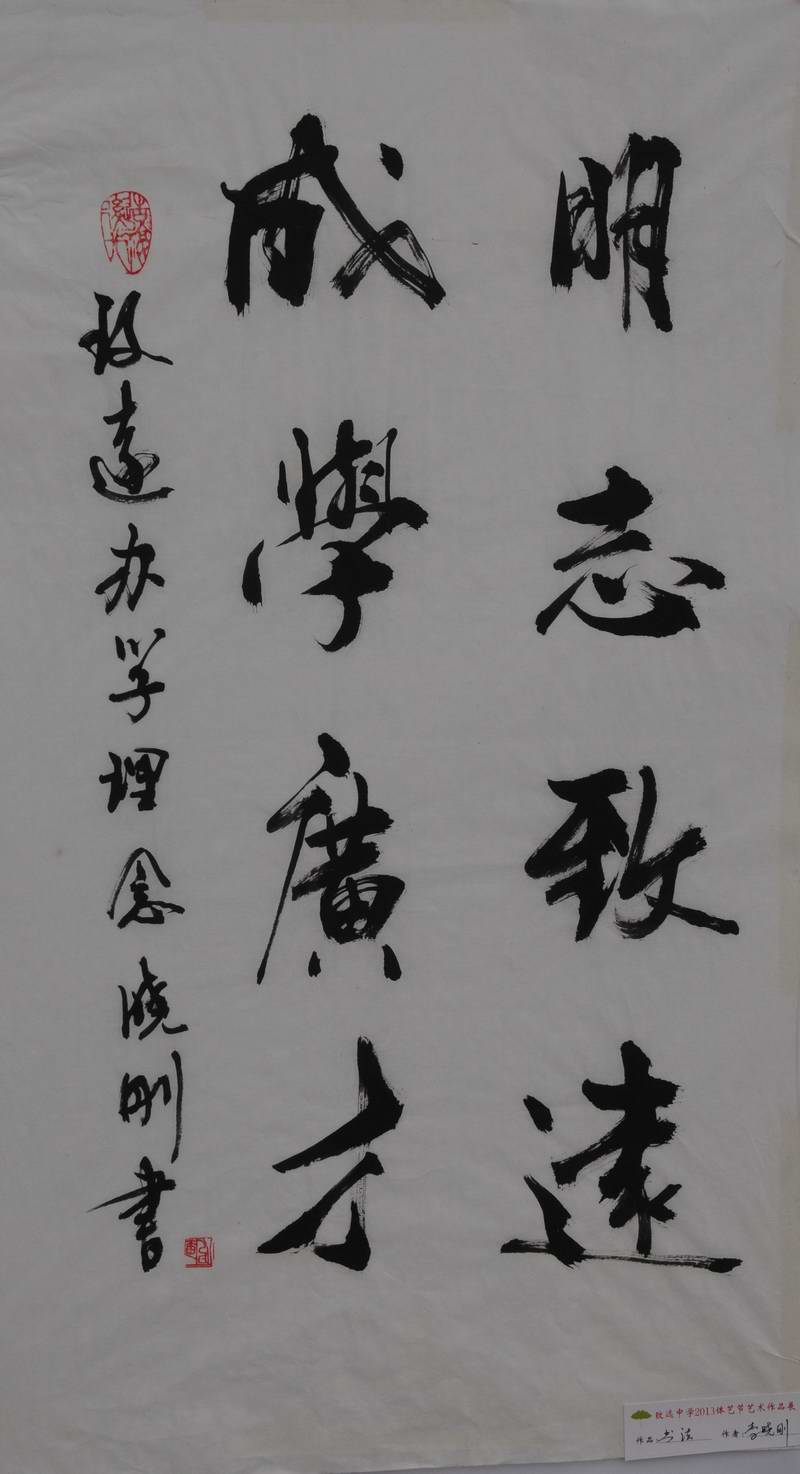 明志致遠
成學廣才
致遠办学理念晓刚書
致远中学2013体艺节艺术作品展
作品 书法 作者 李晓刚